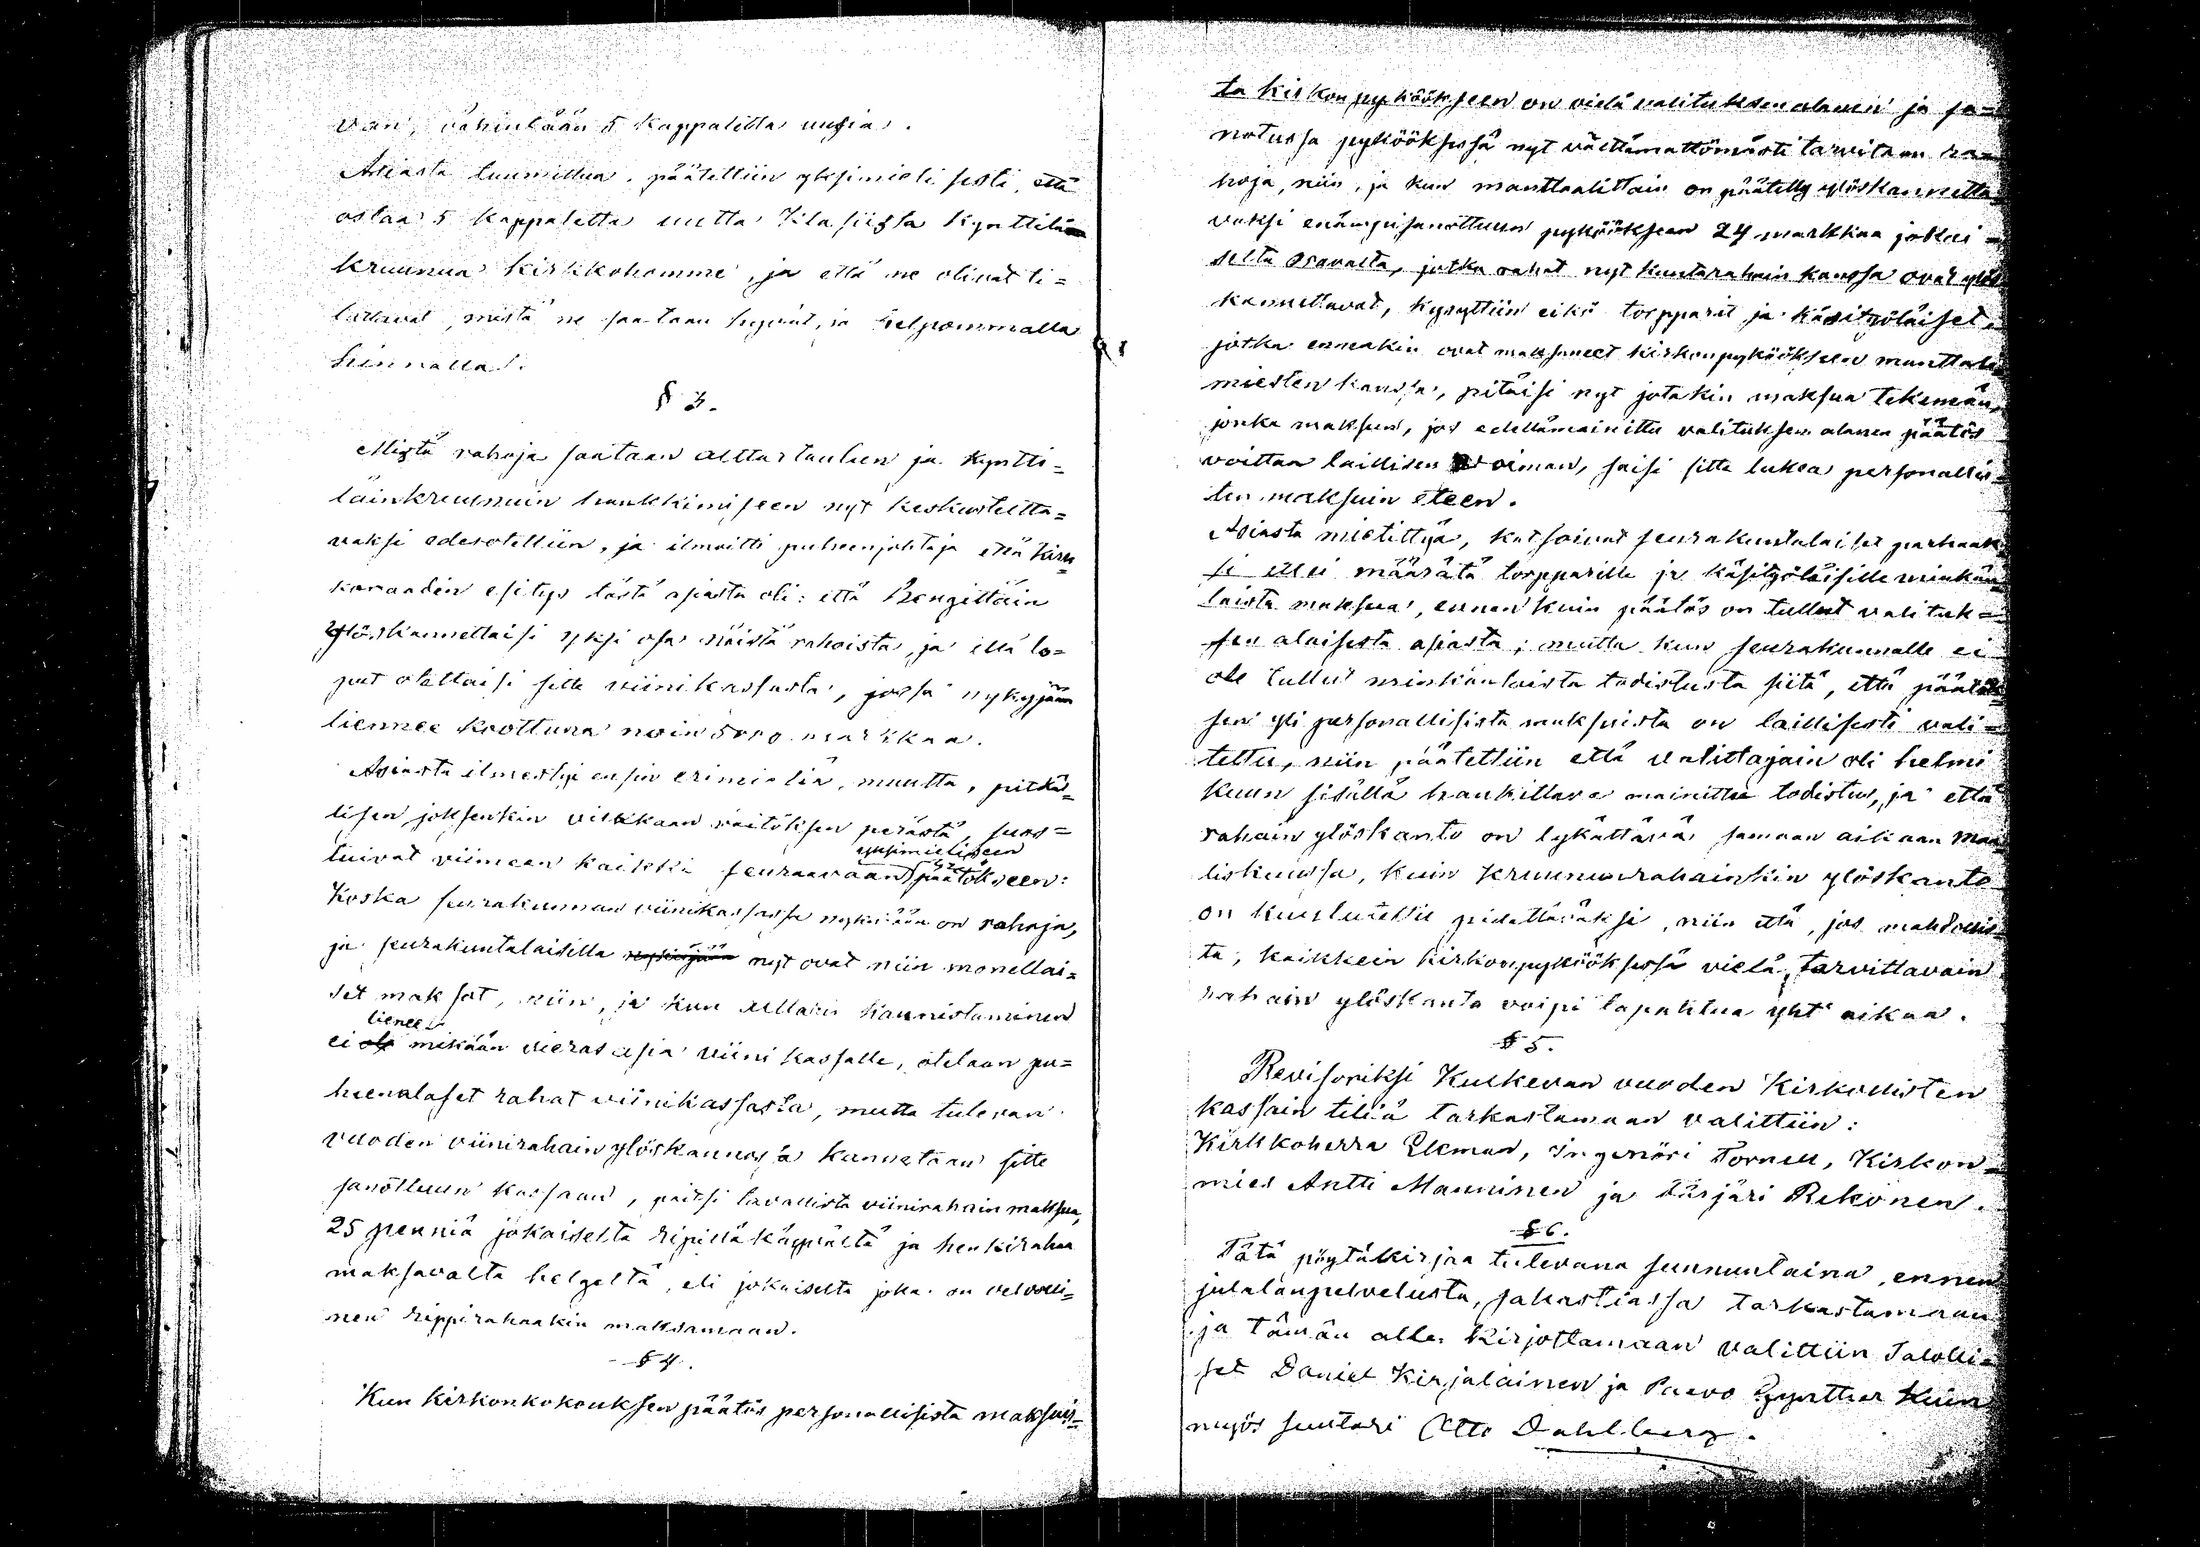 van, vähintään 5 kappaletta uusia.
Asiasta tuumittua, päätettiin yksimielisesti, että
ostaa 5 kappaletta uutta Klasiista kynttilän
kruunua kirkkohomme, ja että ne olivat ti=
lattavat, mistä ne saataan hyvät, ja helpommalla
hinnalla.
§ 3.
Mistä rahoja saataan alttartauluun ja kyntti=
läinkruunuin hankkimiseen nyt keskusteltta=
vaksi edesotettiin, ja ilmoitti puheenjohtaja että kirk=
koraadin esitys tästä asiasta oli: että Rengittäin
ylöskannettaisi yksi osa näistä rahoista, ja että lo=
put otettaisi sitte viinikassasta, jossa nykyjään
liennee koottuna noin 5000 markkaa.
Asiasta ilmestyi ensin erimieliä, muutta, pitkäl=
lisen, joksenkin vilkkaan väitöksen perästä, suos=
tuivat viimeen kaikki seuraavaan yksimieliseen päätökseen:
Koska seurakunnan viinikassassa nykyjään on rahoja,
ja seurakuntalaisilla nykyjään nyt ovat niin monellai=
set maksot, niin, ja kun alttarin kaunistaminen
ei ole lienee mikään vieras asia viini kassalle, otetaan pu=
heenalaset rahat viinikassasta, mutta tulevan
vuoden viinirahain ylöskannossa kannetaan sitte
sanottuun kassaan, paitsi tavallista viinirahain maksua,
25 penniä jokaiselta ripillä käyvältä ja henkirahaa
maksavalta helgeltä, eli jokaiselta joka on velvolli=
nen rippirahaakin maksamaan.
§ 4.
Kun kirkonkokouksen päätös personallisista maksuis=
ta kirkon pyköökseen on vielä valituksen alanen ja sa=
notussa pykööksessä nyt välttämättömästi tarvitaan ra=
hoja, niin, ja kun manttaalittain on päätetty ylöskannetta
vaksi enämpisanottuun pykööksean 24 markkaa jokai=
selta osavalta, jotka rahat nyt kuntarahain kanssa ovat ylös
kannettavat, kysyttiin eikö torpparit ja käsityöläiset,
jotka ennenkin ovat maksaneet kirkonpykööksean manttali
miesten kanssa, pitäisi nyt jotakin maksua tekemän,
jonka maksun, jos edellämainittu valituksen alanen päätös
voittaa laillisen voiman, saisi sitte lukea personallis=
ten maksuin eteen.
Asiasta mietittyä, katsoivat seurakuntalaiset parhaak=
si ettei määrätä torpparille ja käsityöläisille minkään
laista maksua, ennen kuin päätös on tullut valituk=
sen alaisesta asiasta; mutta kun seurakunnalle ei
ole tullut minkäänlaista todistusta siitä, että päätök=
sen yli personallisista maksuista on laillisesti vali=
tettu, niin päätettiin että valittajain oli helmi
kuun sisällä hankittava mainittu todistus, ja että
rahain ylöskanto on lykättävä samaan aikaan Maa
liskuussa, kuin kruununrahainkin ylöskanto
on kuulutettu pidettäväksi, niin että, jos mahdollis=
ta, kaikkein kirkonpykööksessä vielä tarvittavain
rahain ylöskanto voipi tapahtua yht' aikaa.
§ 5.
Revisoriksi Kulkevan vuoden Kirkollisten
kassain tiliä tarkastamaan valittiin:
Kirkkoherra Ekman, Ingenöri Tornell, Kirkon=
mies Antti Manninen ja Yrjäri Rekonen.
§ 6.
Tätä pöytäkirjaa tulevana sunnuntaina, ennen
julalanpelvelusta, sakastiassa tarkastamaan
ja tämän alle kirjottamaan valittiin Talolli=
set Daniel Kirjalainen ja Paavo Gynther kuin
myös suutari Otto Dahlberg.